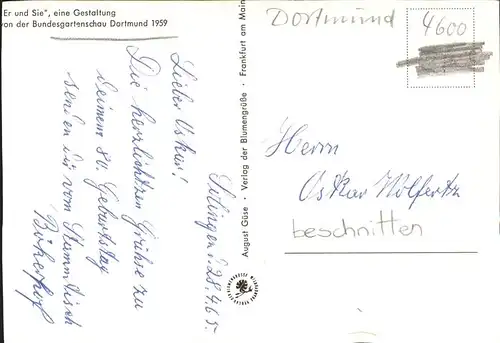 Er und Sie", eine Gestaltung
von der Bundesgartenschau Dortmund 1959
Solingen, d. 28.4.65.
Lieber Oskar!
Die herzlichsten Grüße zu
deinem 80. Geburtstag
senden dir vom Stammtisch
August Güse · Verlag der Blumengrüße · Frankfurt am Main
Dortmund
4600
Herrn
Oskar Wölfertz
beschnitten